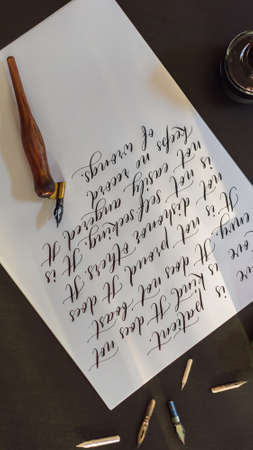 ve is patient.
ove is kind. It does not
envy. It does not boast
It is not proud. It does
not dishonor others. It
is not self seeking. It
is not easily angered. It
keeps no record
of wrongs.